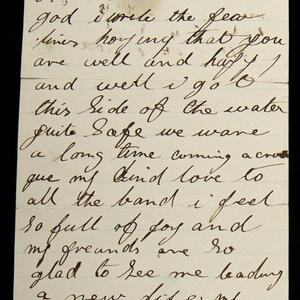 god i write the few
lines hopying that you
are well and happy
and well i got
this side of the water
quite safe we ware
a long time coming across
give my kind love to
all the band i feel
so full of joy and
my freands are so
glad to see me leading
a new life